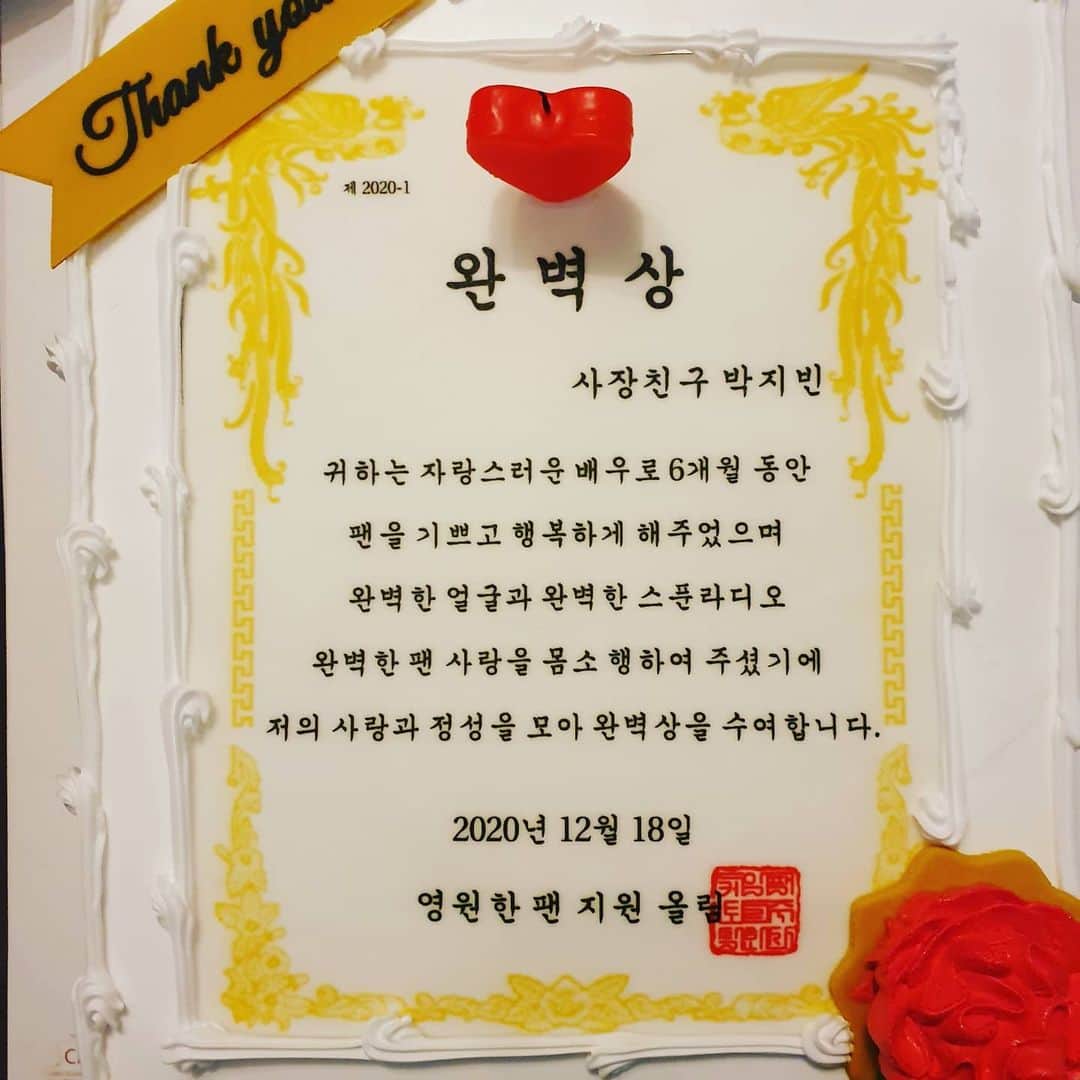 Thank you
제 2020-1
완벽상
사장친구 박지빈
귀하는 자랑스러운 배우로 6개월 동안
팬을 기쁘고 행복하게 해주었으며
완벽한 얼굴과 완벽한 스푼라디오
완벽한 팬 사랑을 몸소 행하여 주셨기에
저의 사랑과 정성을 모아 완벽상을 수여합니다.
2020년 12월 18일
영원한 팬 지원 올림